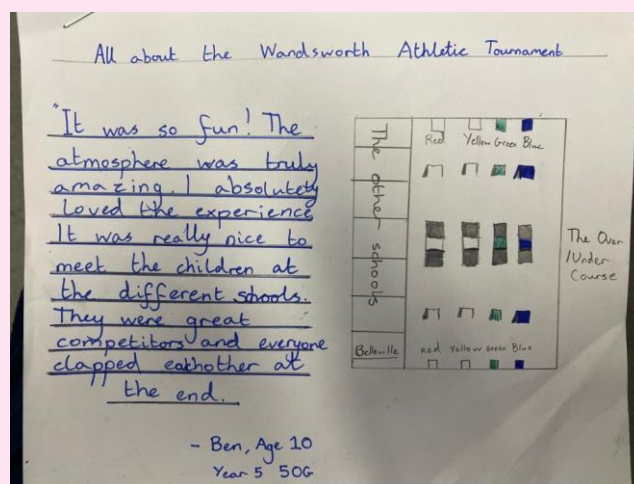 All about the Wandsworth Athletic Tournament
"It was so fun! The
atmosphere was truly
amazing. I absolutely
loved the experience
It was really nice to
meet the children at
the different schools.
They were great
competitors and everyone
clapped eachother at
the end.
- Ben, Age 10
Year 5 5OG
The other schools
Red Yellow Green Blue
The Over
/Under
Course
Belleville
Red Yellow Green Blue